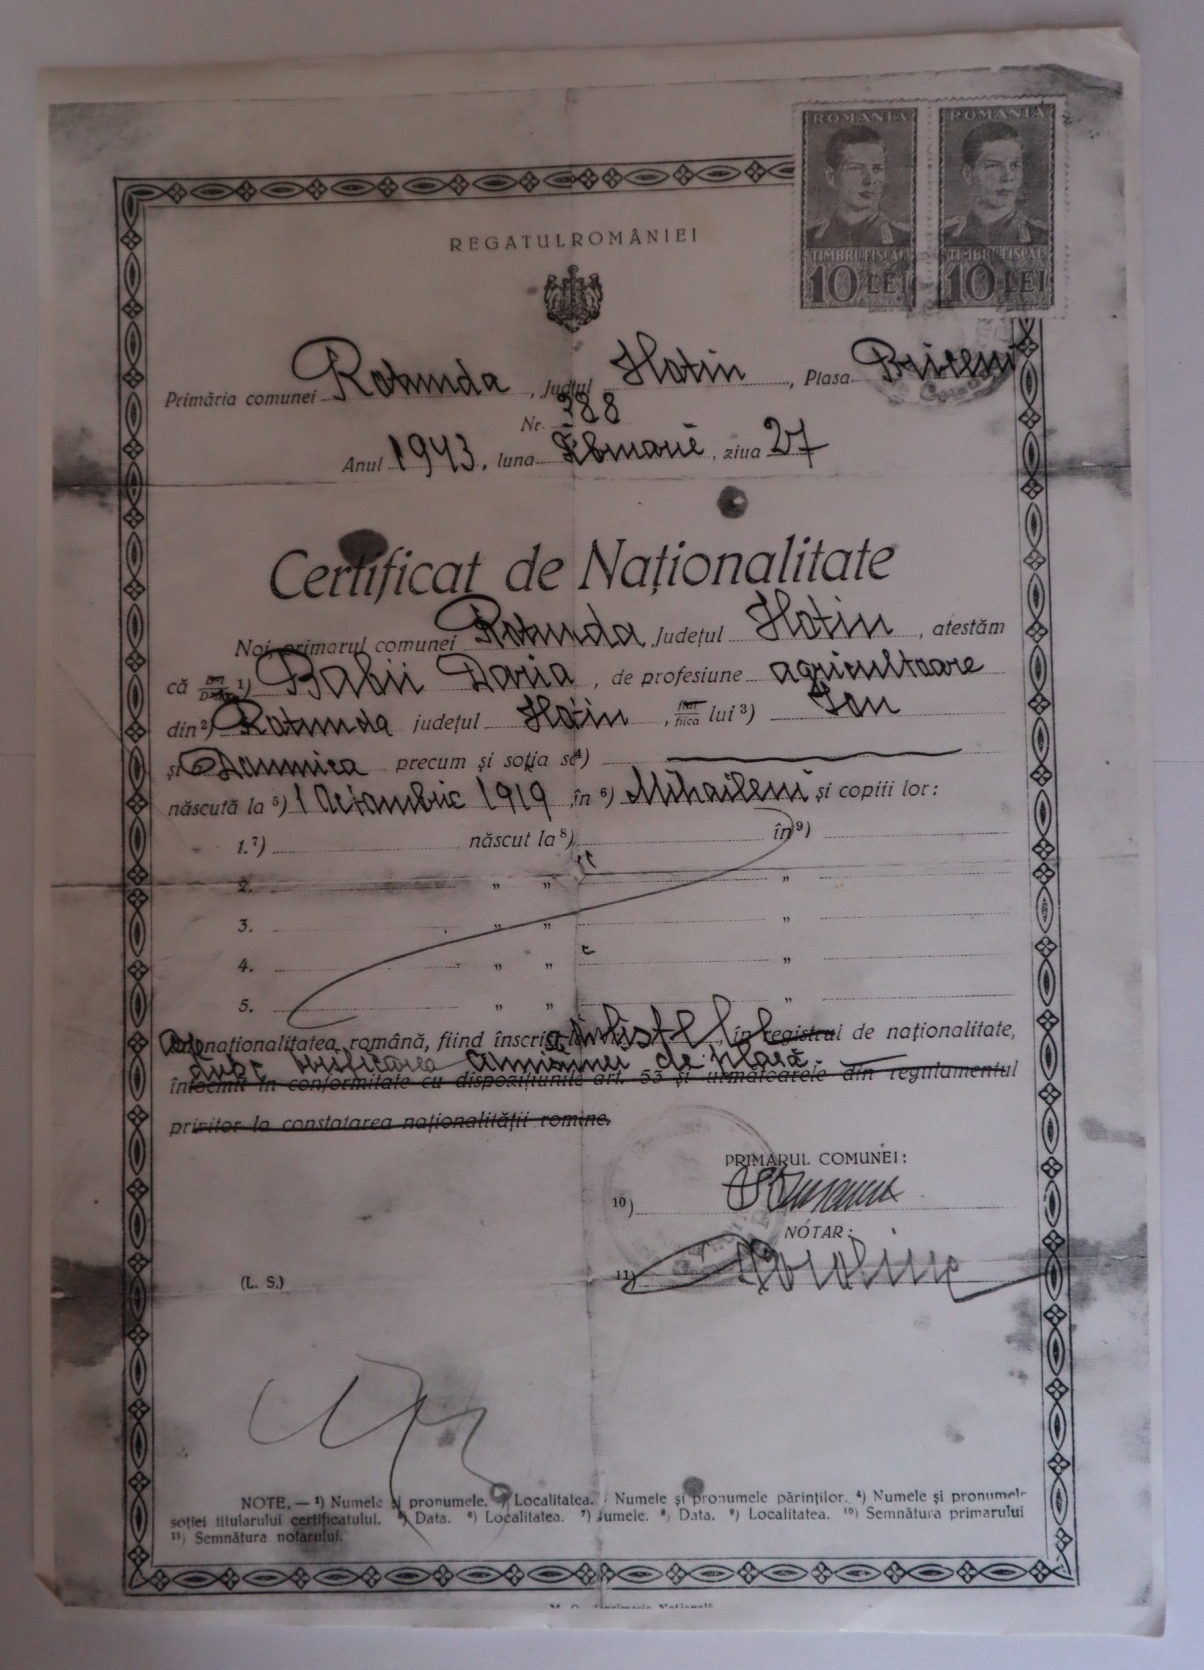 ROMANIA ROMANIA
TIMBRU FISCAL TIMBRU FISCAL
10 LEI 10 LEI
REGATUL ROMÂNIEI
Primăria comunei Rotunda, Județul Hotin, Plasa Briceni
Nr. 388
Anul 1943, luna Februarie, ziua 27
Certificat de Naționalitate
Noi, primarul comunei Rotunda Județul Hotin, atestăm
că 1) Babii Daria, de profesiune agricultoare
din 2) Rotunda județul Hotin, fiul fiica lui 3) Ion
și Domnica precum și soția sa 4)
născută la 5) 1 Octombrie 1919 în 6) Mihaileni și copiii lor:
1. 7) născut la 8) în 9)
2. „ „ „
3. „ „ „
4. „ „ „
5. „ „ „
naționalitatea română, fiind înscris, în registrul de naționalitate,
după verificarea de
întocmit în conformitate cu dispozițiunile art. 53 și următoarele din regulamentul
privitor la constatarea naționalității romîne.
PRIMARUL COMUNEI:
10)
NOTAR:
11)
(L. S.)
NOTE. — 1) Numele și pronumele. Localitatea. Numele și pronumele părinților. 4) Numele și pronumele
soției titularului certificatului. 5) Data. 6) Localitatea. 7) Numele. 8) Data. 9) Localitatea. 10) Semnătura primarului
11) Semnătura notarului.
M. O. Imprimeria Națională